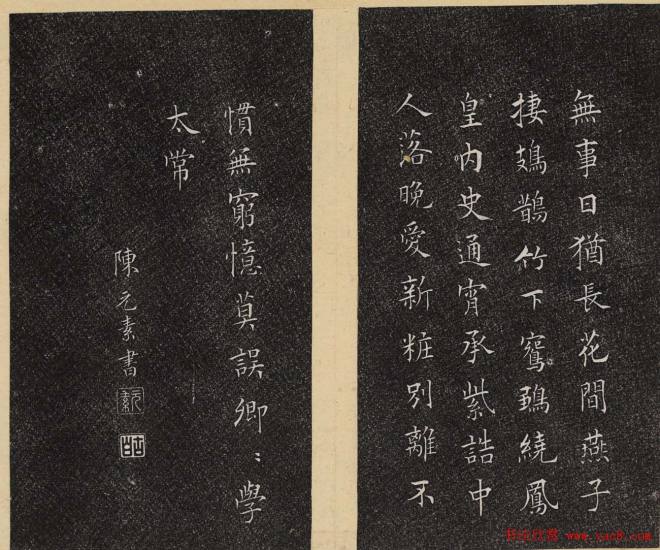 無事日猶長花間燕子
棲鳷鵲竹下鴛鵶繞鳳
皇内史通宵承紫誥中
人落晚愛新粧別離不
慣無窮憶莫誤卿〻學
太常
陳元素書
www.yac8.com